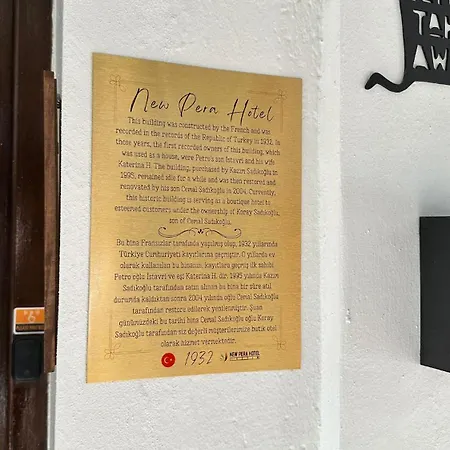 New Pera Hotel
This building was constructed by the French and was
recorded in the records of the Republic of Turkey in 1932. In
those years, the first recorded owners of this building, which
was used as a house, were Petro's son Istavri and his wife
Katerina H. The building, purchased by Kazım Sadıkoğlu in
1995, remained idle for a while and was then restored and
renovated by his son Cemal Sadıkoğlu in 2004. Currently,
this historic building is serving as a boutique hotel to
esteemed customers under the ownership of Koray Sadıkoğlu,
son of Cemal Sadıkoğlu.
Bu bina Fransızlar tarafında yapılmış olup, 1932 yıllarında
Türkiye Cumhuriyeti kayıtlarına geçmiştir. O yıllarda ev
olarak kullanılan bu binanın, kayıtlara geçmiş ilk sahibi
Petro oğlu İstavri ve eşi Katerina H. dır. 1995 yılında Kazım
Sadıkoğlu tarafından satın alınan bu bina bir süre atıl
durumda kaldıktan sonra 2004 yılında oğlu Cemal Sadıkoğlu
tarafından restore edilerek yenilenmiştir. Şuan
günümüzdeki bu tarihi bina Cemal Sadıkoğlu oğlu Koray
Sadıkoğlu tarafından siz değerli müşterilerimize butik otel
olarak hizmet vermektedir.
1932 NEW PERA HOTEL
TAK
AW